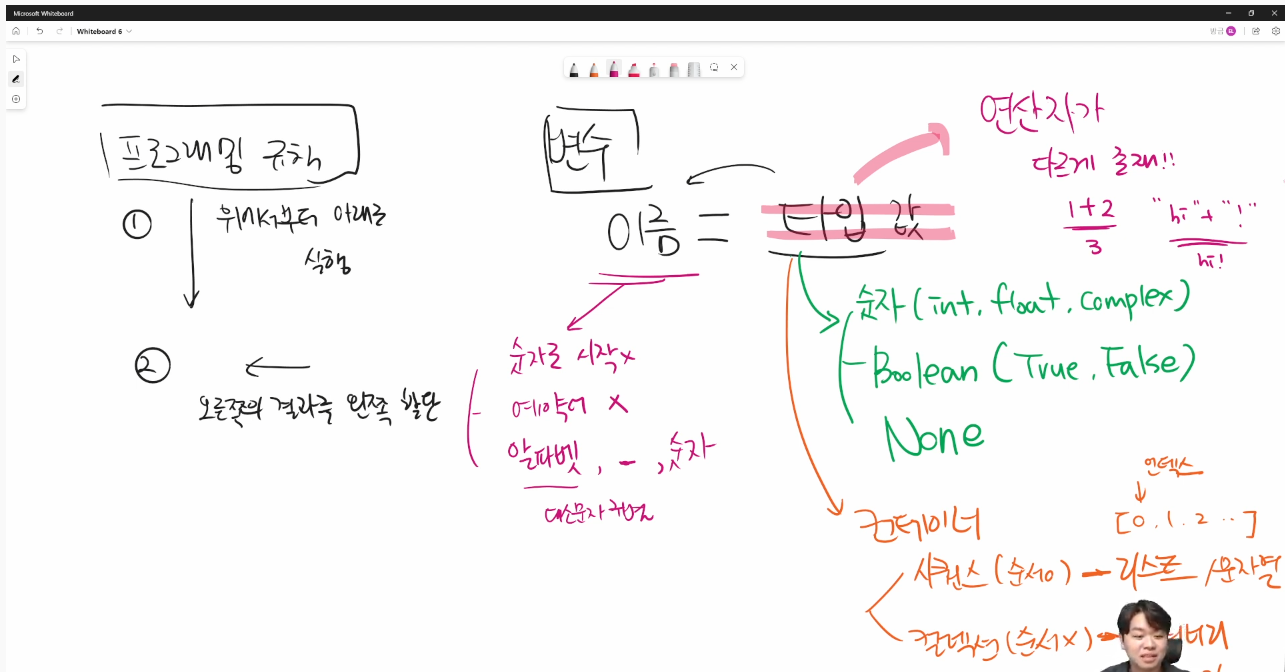 Microsoft Whiteboard
Whiteboard 6
프로그래밍 규칙
① 위에서부터 아래로
실행
② ←
오른쪽의 결과를 왼쪽 할당
변수
이름 = 타입 값
숫자로 시작 x
예약어 x
알파벳, _, 숫자
대소문자 구별
연산자가
다르게 존재!!
1+2
3
"hi"+"!"
hi!
숫자 (int, float, complex)
Boolean (True, False)
None
컨테이너
인덱스
[0, 1, 2 ..]
시퀀스 (순서o) - 리스트 / 문자열
컬렉션 (순서x) -